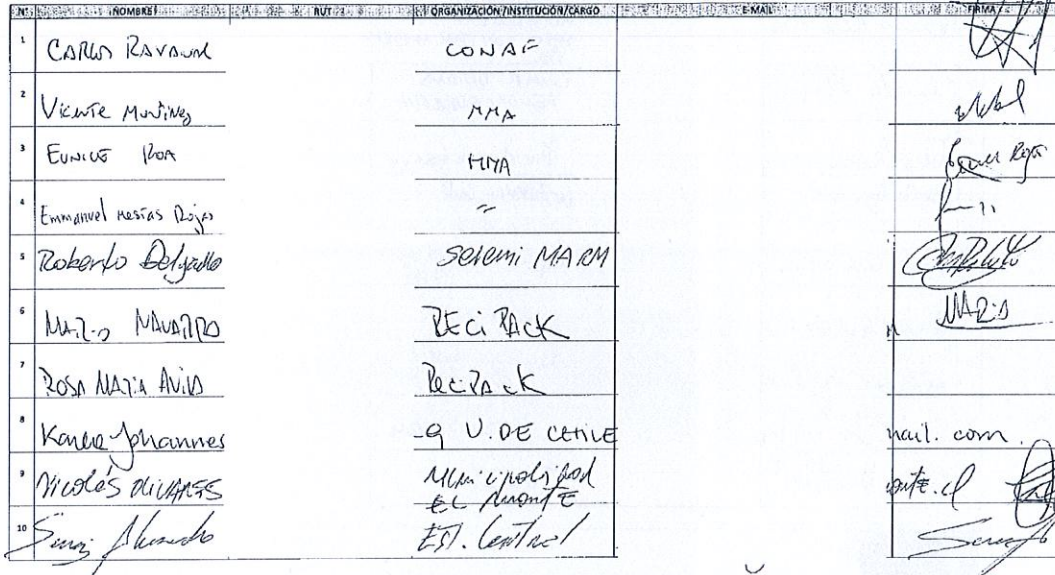 Nº NOMBRE RUT ORGANIZACIÓN/INSTITUCIÓN/CARGO E-MAIL FIRMA
1 CARLOS CONAF
2 Vicente MMA
3 EUNICE ROA MMA
4 Emmanuel Mesías Rojas "
5 Roberto Delgado Seremi MARM
6 MARIO NAVARRO RECiPACK MARIO
7 ROSA MARIA AVILA RECiPACK
8 Karla Johannes -9 U. DE CHILE mail.com.
9 Nicolás OLIVARES Municipalidad
EL MONTE onte.cl
10 Est. Central